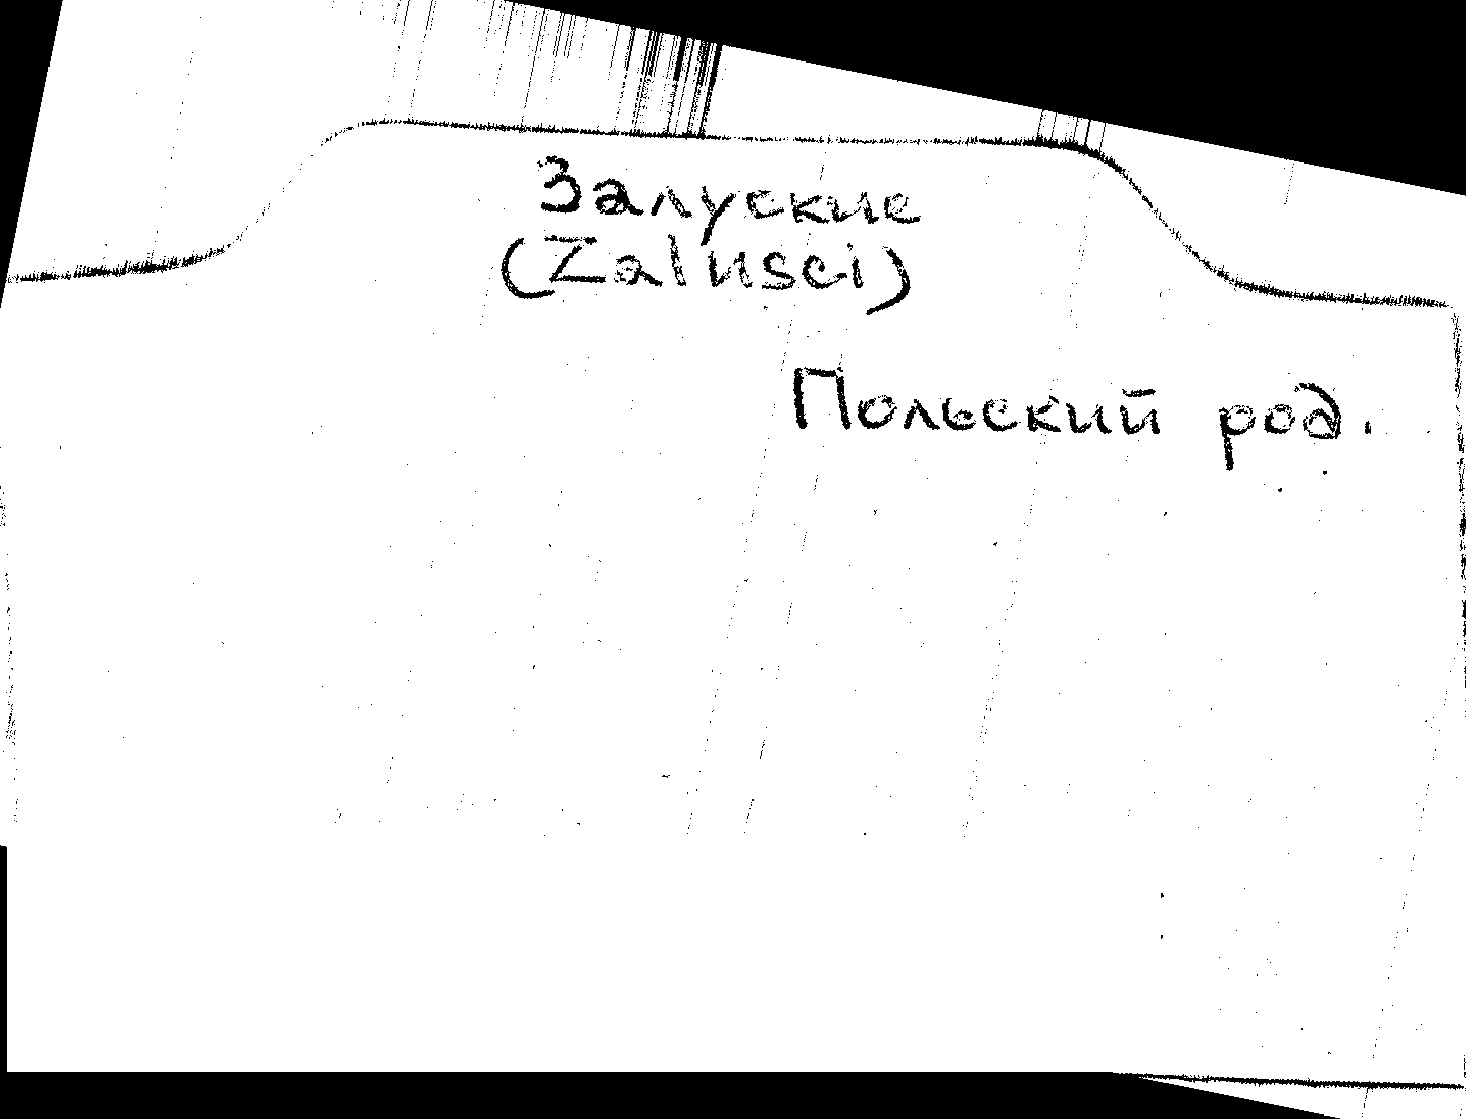 Залуские
(Zalusci)
Польский род.